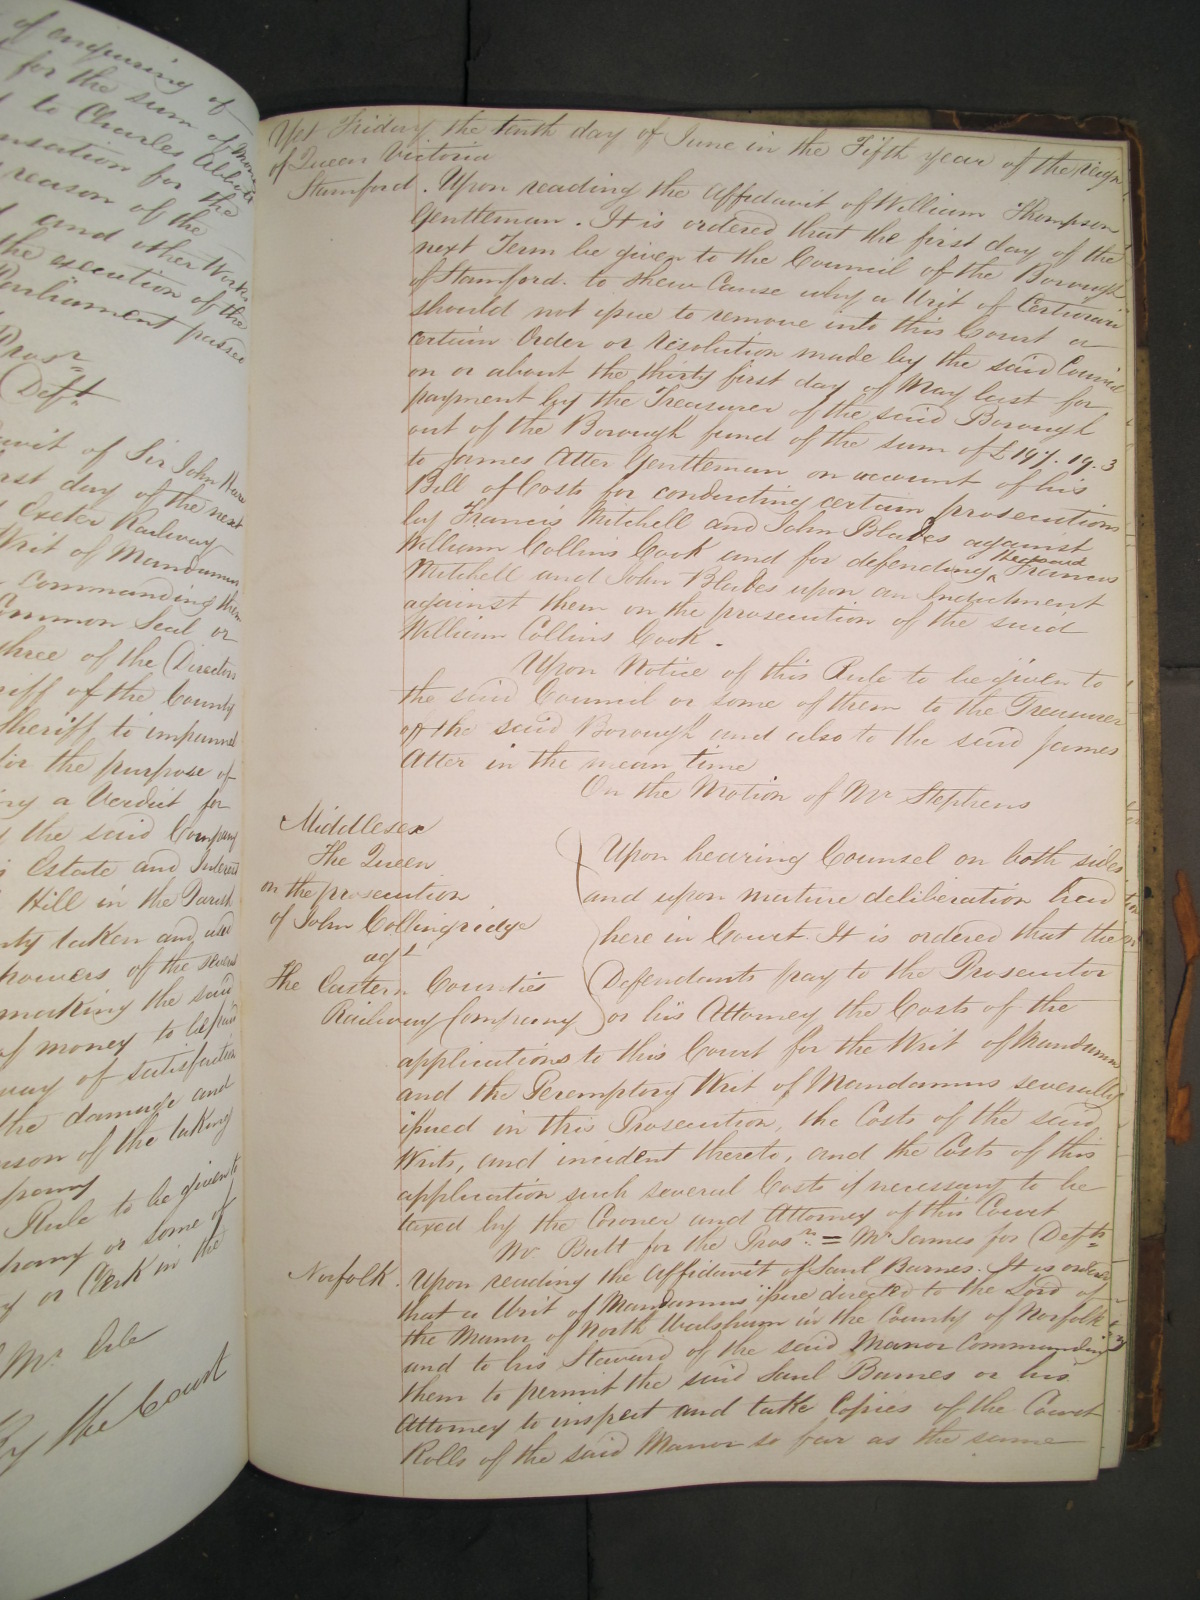 of enquiring of
for the sum of Money
to Charles Abbott
for the
reason of the
and other Works
the execution of the
Parliament passed
Pros.r
Deft.
of Sir John
day of the next
Exeter Railway
Writ of Mandamus
Commanding them
Common Seal or
three of the Directors
of the County
Sheriff to impannel
for the purpose of
a Verdict for
the said Company
Estate and Interest
Hill in the Parish
taken and
powers of the
making the said
of money to be paid
way of satisfaction
the damage and
reason of the taking
Rule to be given to
or some of
or Clerk in the
Mr.
By the Court
Yet Friday the tenth day of June in the Fifth year of the reign
of Queen Victoria
Stamford. Upon reading the Affidavit of William Thompson
Gentleman. It is ordered that the first day of the
next Term be given to the Council of the Borough
of Stamford. to shew Cause why a Writ of Certiorari
should not issue to remove into this Court a
certain Order or Resolution made by the said Council
on or about the thirty first day of May last for
payment by the Treasurer of the said Borough
out of the Borough fund of the sum of £197.19.3
to James Atter Gentleman on account of his
Bill of Costs for conducting certain prosecutions
by Francis Mitchell and John Blades against
William Collins Cook and for defending the said Francis
Mitchell and John Blades upon an Indictment
against them on the prosecution of the said
William Collins Cook.
Upon Notice of this Rule to be given to
the said Council or some of them to the Treasurer
of the said Borough and also to the said James
Atter in the mean time
On the Motion of Mr. Stephens
Middlesex
The Queen
on the prosecution
of John Collingridge
agt.
The Eastern Counties
Railway Company
Upon hearing Counsel on both sides
and upon mature deliberation had
here in Court. It is ordered that the
Defendants pay to the Prosecutor
or his Attorney the Costs of the
applications to this Court for the Writ of Mandamus
and the Peremptory Writ of Mandamus severally
issued in this Prosecution, the Costs of the said
Writs, and incident thereto, and the Costs of this
application such several Costs if necessary to be
taxed by the Coroner and Attorney of this Court
Mr. Butt for the Pros.r = Mr. James for Defts
Norfolk. Upon reading the Affidavit of Saul Barnes. It is ordered
that a Writ of Mandamus issue directed to the Lord of
the Manor of North Walsham in the County of Norfolk
and to his Steward of the said Manor Commanding
them to permit the said Saul Barnes or his
Attorney to inspect and take Copies of the Court
Rolls of the said Manor so far as the same